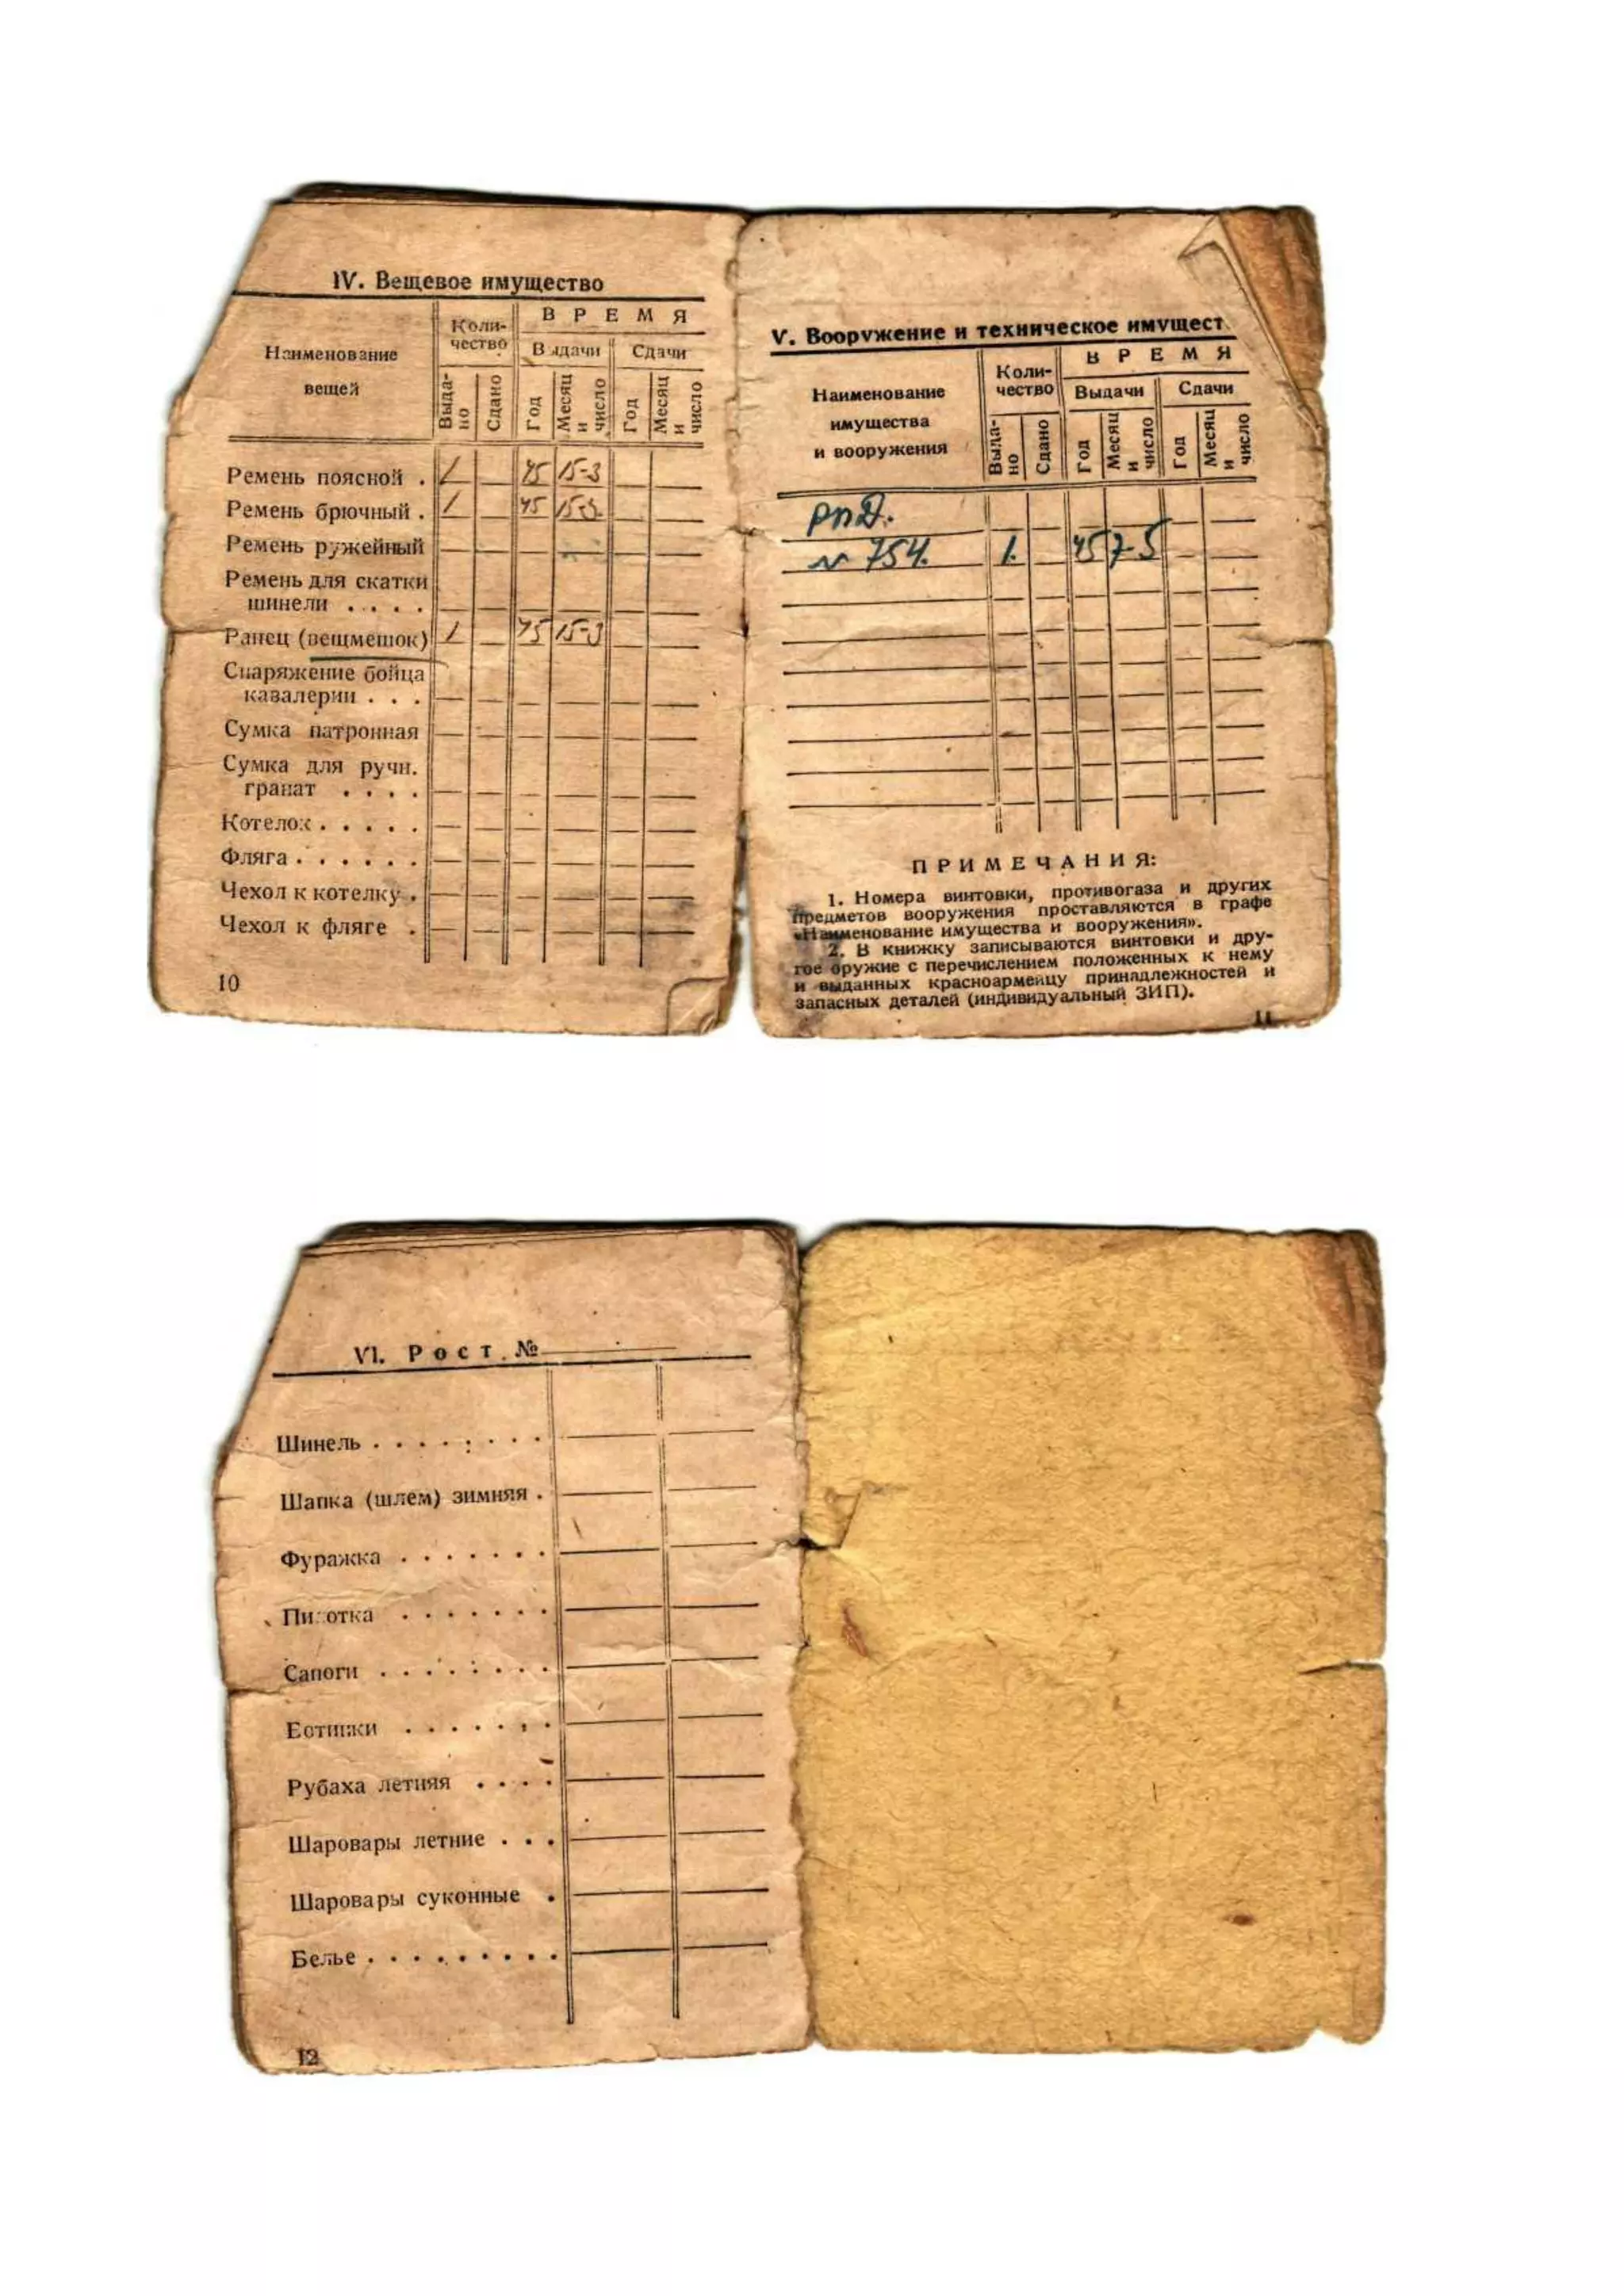 IV. Вещевое имущество
Наименование
вещей
Коли-
чество
ВРЕМЯ
Выдачи
Сдачи
Выда-
но
Сдано
Год
Месяц
и
число
Год
Месяц
и
число
Ремень поясной . 1 45 15-3
Ремень брючный . 1 45 15-3
Ремень ружейный
Ремень для скатки
шинели . . . .
Ранец (вещмешок) 1 45 15-3
Снаряжение бойца
кавалерии . . .
Сумка патронная
Сумка для ручн.
гранат . . . .
Котелок . . . . .
Фляга . . . . . .
Чехол к котелку .
Чехол к фляге .
10
V. Вооружение и техническое имущест
Наименование
имущества
и вооружения
Коли-
чество
ВРЕМЯ
Выдачи
Сдачи
Выда-
но
Сдано
Год
Месяц
и
число
Год
Месяц
и
число
РПД.
№ 754. 1. 45 7-5
ПРИМЕЧАНИЯ:
1. Номера винтовки, противогаза и других
предметов вооружения проставляются в графе
«Наименование имущества и вооружения».
2. В книжку записываются винтовки и дру-
гое оружие с перечислением положенных к нему
и выданных красноармейцу принадлежностей и
запасных деталей (индивидуальный ЗИП).
11
VI. Рост №
Шинель . . . . . . . .
Шапка (шлем) зимняя .
Фуражка . . . . . . .
Пилотка . . . . . . .
Сапоги . . . . . . . .
Ботинки . . . . . . .
Рубаха летняя . . . .
Шаровары летние . . .
Шаровары суконные .
Белье . . . . . . . . .
12